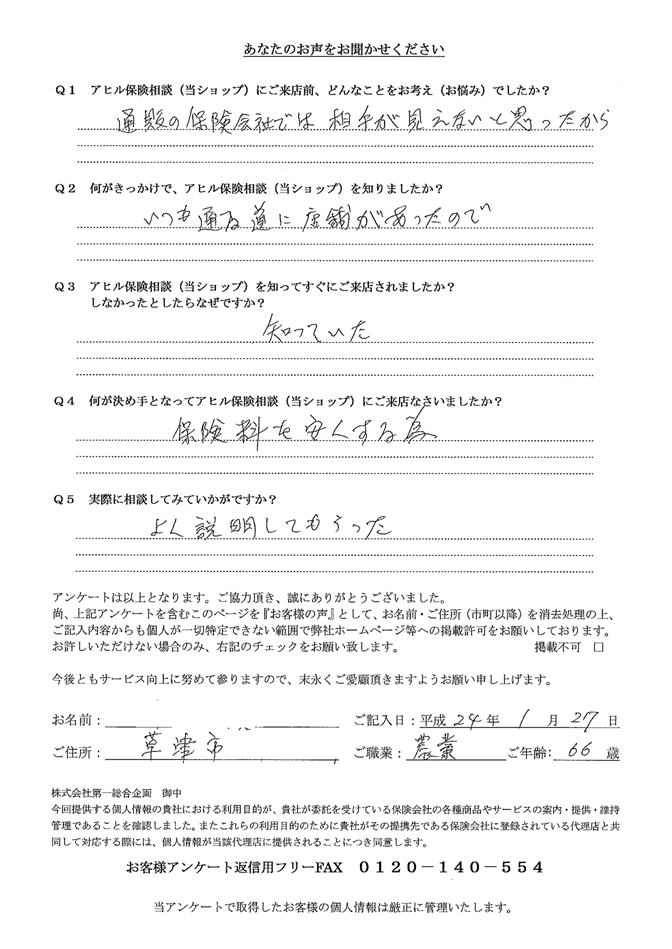 あなたのお声をお聞かせください
Q1 アヒル保険相談（当ショップ）にご来店前、どんなことをお考え（お悩み）でしたか？
通販の保険会社では相手が見えないと思ったから
Q2 何がきっかけで、アヒル保険相談（当ショップ）を知りましたか？
いつも通る道に店舗があったので
Q3 アヒル保険相談（当ショップ）を知ってすぐにご来店されましたか？
しなかったとしたらなぜですか？
知っていた
Q4 何が決め手となってアヒル保険相談（当ショップ）にご来店なさいましたか？
保険料を安くする為
Q5 実際に相談してみていかがですか？
よく説明してもらった
アンケートは以上となります。ご協力頂き、誠にありがとうございました。
尚、上記アンケートを含むこのページを『お客様の声』として、お名前・ご住所（市町以降）を消去処理の上、
ご記入内容からも個人が一切特定できない範囲で弊社ホームページ等への掲載許可をお願いしております。
お許しいただけない場合のみ、右記のチェックをお願い致します。 掲載不可 □
今後ともサービス向上に努めて参りますので、末永くご愛顧頂きますようお願い申し上げます。
お名前： ご記入日：平成 24 年 1 月 27 日
ご住所： 草津市 ご職業： 農業 ご年齢： 66 歳
株式会社第一総合企画 御中
今回提供する個人情報の貴社における利用目的が、貴社が委託を受けている保険会社の各種商品やサービスの案内・提供・維持
管理であることを確認しました。またこれらの利用目的のために貴社がその提携先である保険会社に登録されている代理店と共
同して対応する際には、個人情報が当該代理店に提供されることにつき同意します。
お客様アンケート返信用フリーFAX 0120－140－554
当アンケートで取得したお客様の個人情報は厳正に管理いたします。